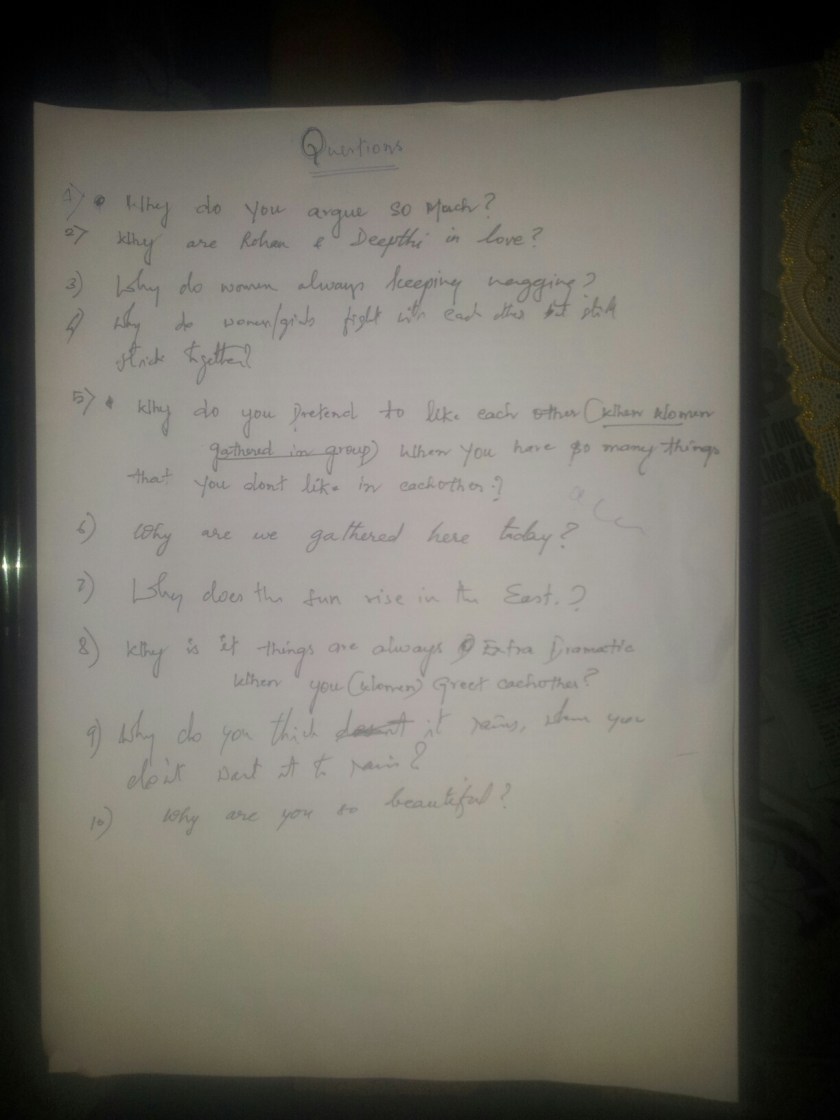 Questions
1) Why do you argue so Much?
2) Why are Rohan & Deepthi in love?
3) Why do women always keeping nagging?
4) Why do women/girls fight with each other but still
stick together?
5) Why do you Pretend to like each other (When Women
gathered in group) When you have so many things
that you dont like in eachother?
6) Why are we gathered here today?
7) Why does the sun rise in the East.?
8) Why is it things are always Extra Dramatic
When you (Women) Greet eachother?
9) Why do you think it rains, when you
don't want it to rain?
10) Why are you so beautiful?